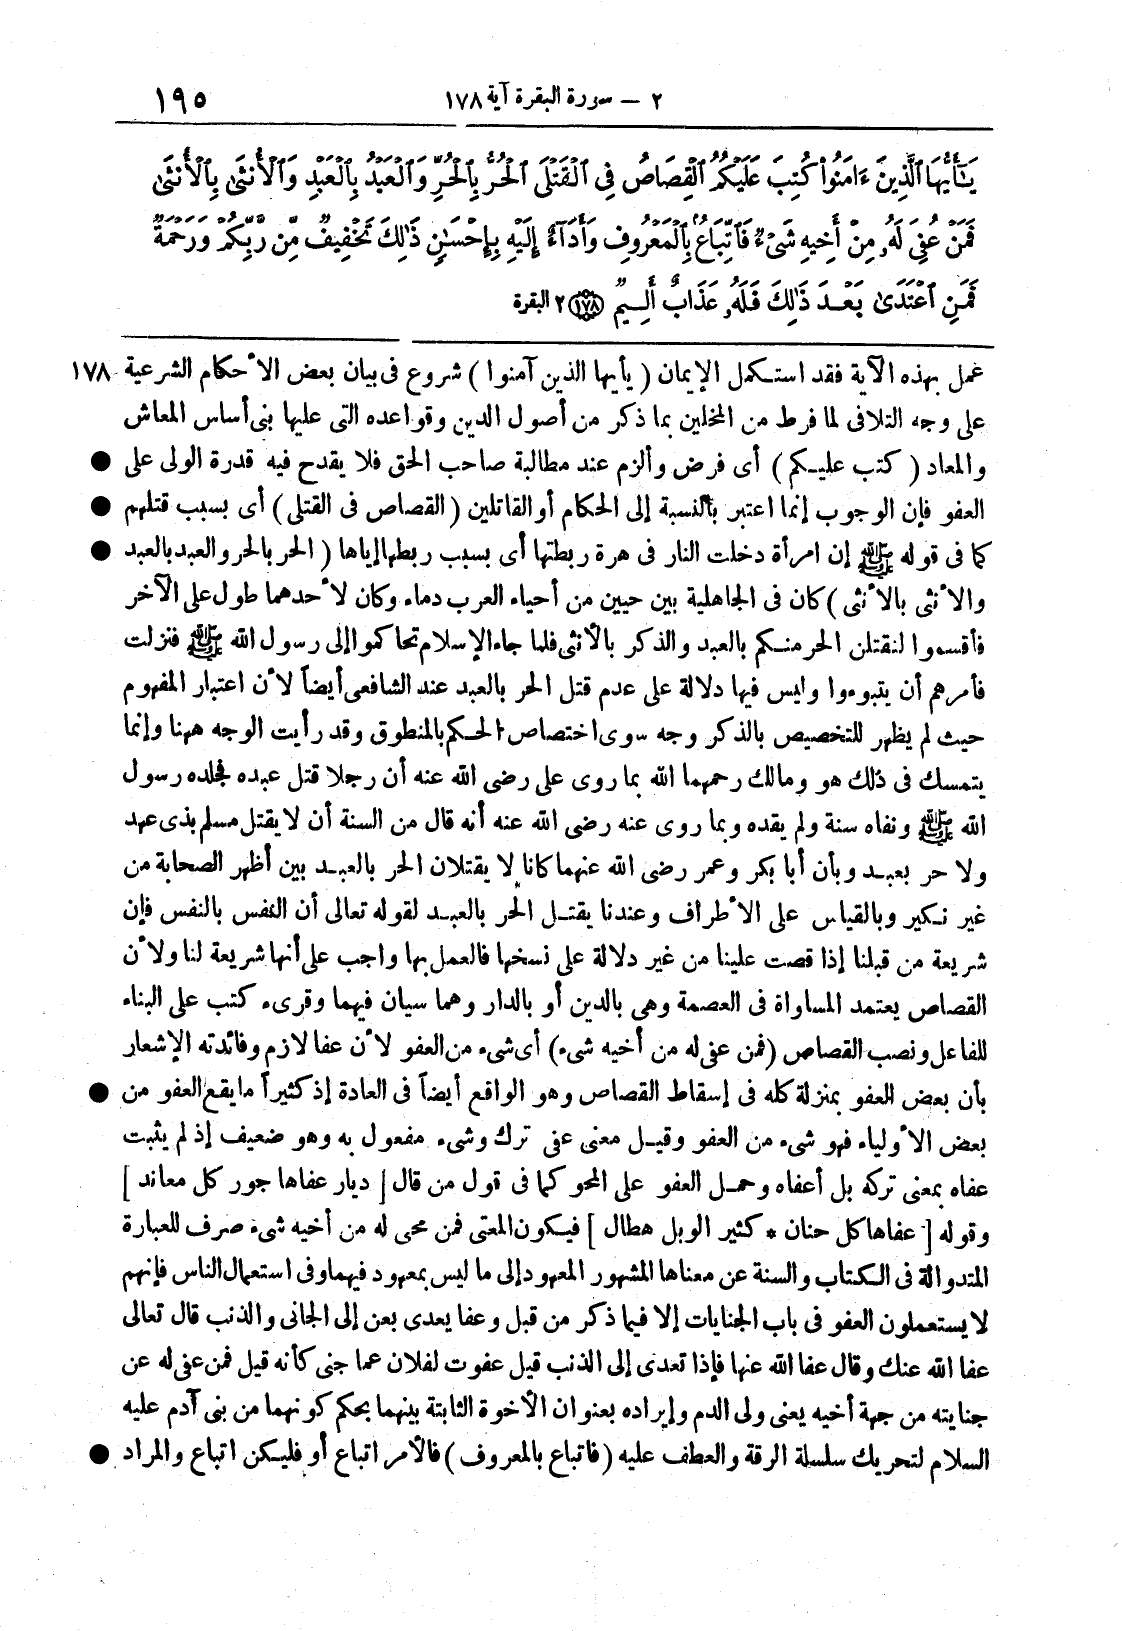 ٢ – سورة البقرة آية ١٧٨ ١٩٥
يَٰٓأَيُّهَا ٱلَّذِينَ ءَامَنُوا۟ كُتِبَ عَلَيْكُمُ ٱلْقِصَاصُ فِى ٱلْقَتْلَى ٱلْحُرُّ بِٱلْحُرِّ وَٱلْعَبْدُ بِٱلْعَبْدِ وَٱلْأُنثَىٰ بِٱلْأُنثَىٰ
فَمَنْ عُفِىَ لَهُۥ مِنْ أَخِيهِ شَىْءٌ فَٱتِّبَاعٌۢ بِٱلْمَعْرُوفِ وَأَدَآءٌ إِلَيْهِ بِإِحْسَٰنٍ ذَٰلِكَ تَخْفِيفٌ مِّن رَّبِّكُمْ وَرَحْمَةٌ
فَمَنِ ٱعْتَدَىٰ بَعْدَ ذَٰلِكَ فَلَهُۥ عَذَابٌ أَلِيمٌ ١٧٨ ٢ البقرة
عمل بهذه الآية فقد استكمل الإيمان ( يأيها الذين آمنوا ) شروع فى بيان بعض الأحكام الشرعية ١٧٨
على وجه التلافى لما فرط من المخلين بما ذكر من أصول الدين وقواعده التى عليها بنى أساس المعاش
والمعاد ( كتب عليكم ) أى فرض وألزم عند مطالبة صاحب الحق فلا يقدح فيه قدرة الولى على ●
العفو فإن الوجوب إنما اعتبر بالنسبة إلى الحكام أو القاتلين ( القصاص فى القتلى ) أى بسبب قتلهم ●
كما فى قوله ﷺ إن امرأة دخلت النار فى هرة ربطتها أى بسبب ربطها إياها ( الحر بالحر والعبد بالعبد ●
والأنثى بالأنثى ) كان فى الجاهلية بين حيين من أحياء العرب دماء وكان لأحدهما طول على الآخر
فأقسموا لنقتلن الحر منكم بالعبد والذكر بالأنثى فلما جاء الإسلام تحاكموا إلى رسول الله ﷺ فنزلت
فأمرهم أن يتبوءوا وليس فيها دلالة على عدم قتل الحر بالعبد عند الشافعى أيضاً لأن اعتبار المفهوم
حيث لم يظهر للتخصيص بالذكر وجه سوى اختصاص الحكم بالمنطوق وقد رأيت الوجه ههنا وإنما
يتمسك فى ذلك هو ومالك رحمهما الله بما روى على رضى الله عنه أن رجلا قتل عبده فجلده رسول
الله ﷺ ونفاه سنة ولم يقده وبما روى عنه رضى الله عنه أنه قال من السنة أن لا يقتل مسلم بذى عهد
ولا حر بعبد وبأن أبا بكر وعمر رضى الله عنهما كانا لا يقتلان الحر بالعبد بين أظهر الصحابة من
غير نكير وبالقياس على الأطراف وعندنا يقتل الحر بالعبد لقوله تعالى أن النفس بالنفس فإن
شريعة من قبلنا إذا قصت علينا من غير دلالة على نسخها فالعمل بها واجب على أنها شريعة لنا ولأن
القصاص يعتمد المساواة فى العصمة وهى بالدين أو بالدار وهما سيان فيهما وقرىء كتب على البناء
للفاعل ونصب القصاص ( فمن عفى له من أخيه شىء ) أى شىء من العفو لأن عفا لازم وفائدته الإشعار
بأن بعض العفو بمنزلة كله فى إسقاط القصاص وهو الواقع أيضاً فى العادة إذ كثيراً ما يقع العفو من ●
بعض الأولياء فهو شىء من العفو وقيل معنى عفى ترك وشىء مفعول به وهو ضعيف إذ لم يثبت
عفاه بمعنى تركه بل أعفاه وحمل العفو على المحو كما فى قول من قال [ ديار عفاها جور كل معاند ]
وقوله [ عفاها كل حنان * كثير الوبل هطال ] فيكون المعنى فمن محى له من أخيه شىء صرف للعبارة
المتداولة فى الكتاب والسنة عن معناها المشهور المعهود إلى ما ليس بمعهود فيهما وفى استعمال الناس فإنهم
لا يستعملون العفو فى باب الجنايات إلا فيما ذكر من قبل وعفا يعدى بعن إلى الجانى والذنب قال تعالى
عفا الله عنك وقال عفا الله عنها فإذا تعدى إلى الذنب قيل عفوت لفلان عما جنى كأنه قيل فمن عفى له عن
جنايته من جهة أخيه يعنى ولى الدم وإيراده بعنوان الأخوة الثابتة بينهما بحكم كونهما من بنى آدم عليه
السلام لتحريك سلسلة الرقة والعطف عليه ( فاتباع بالمعروف ) فالأمر اتباع أو فليكن اتباع والمراد ●